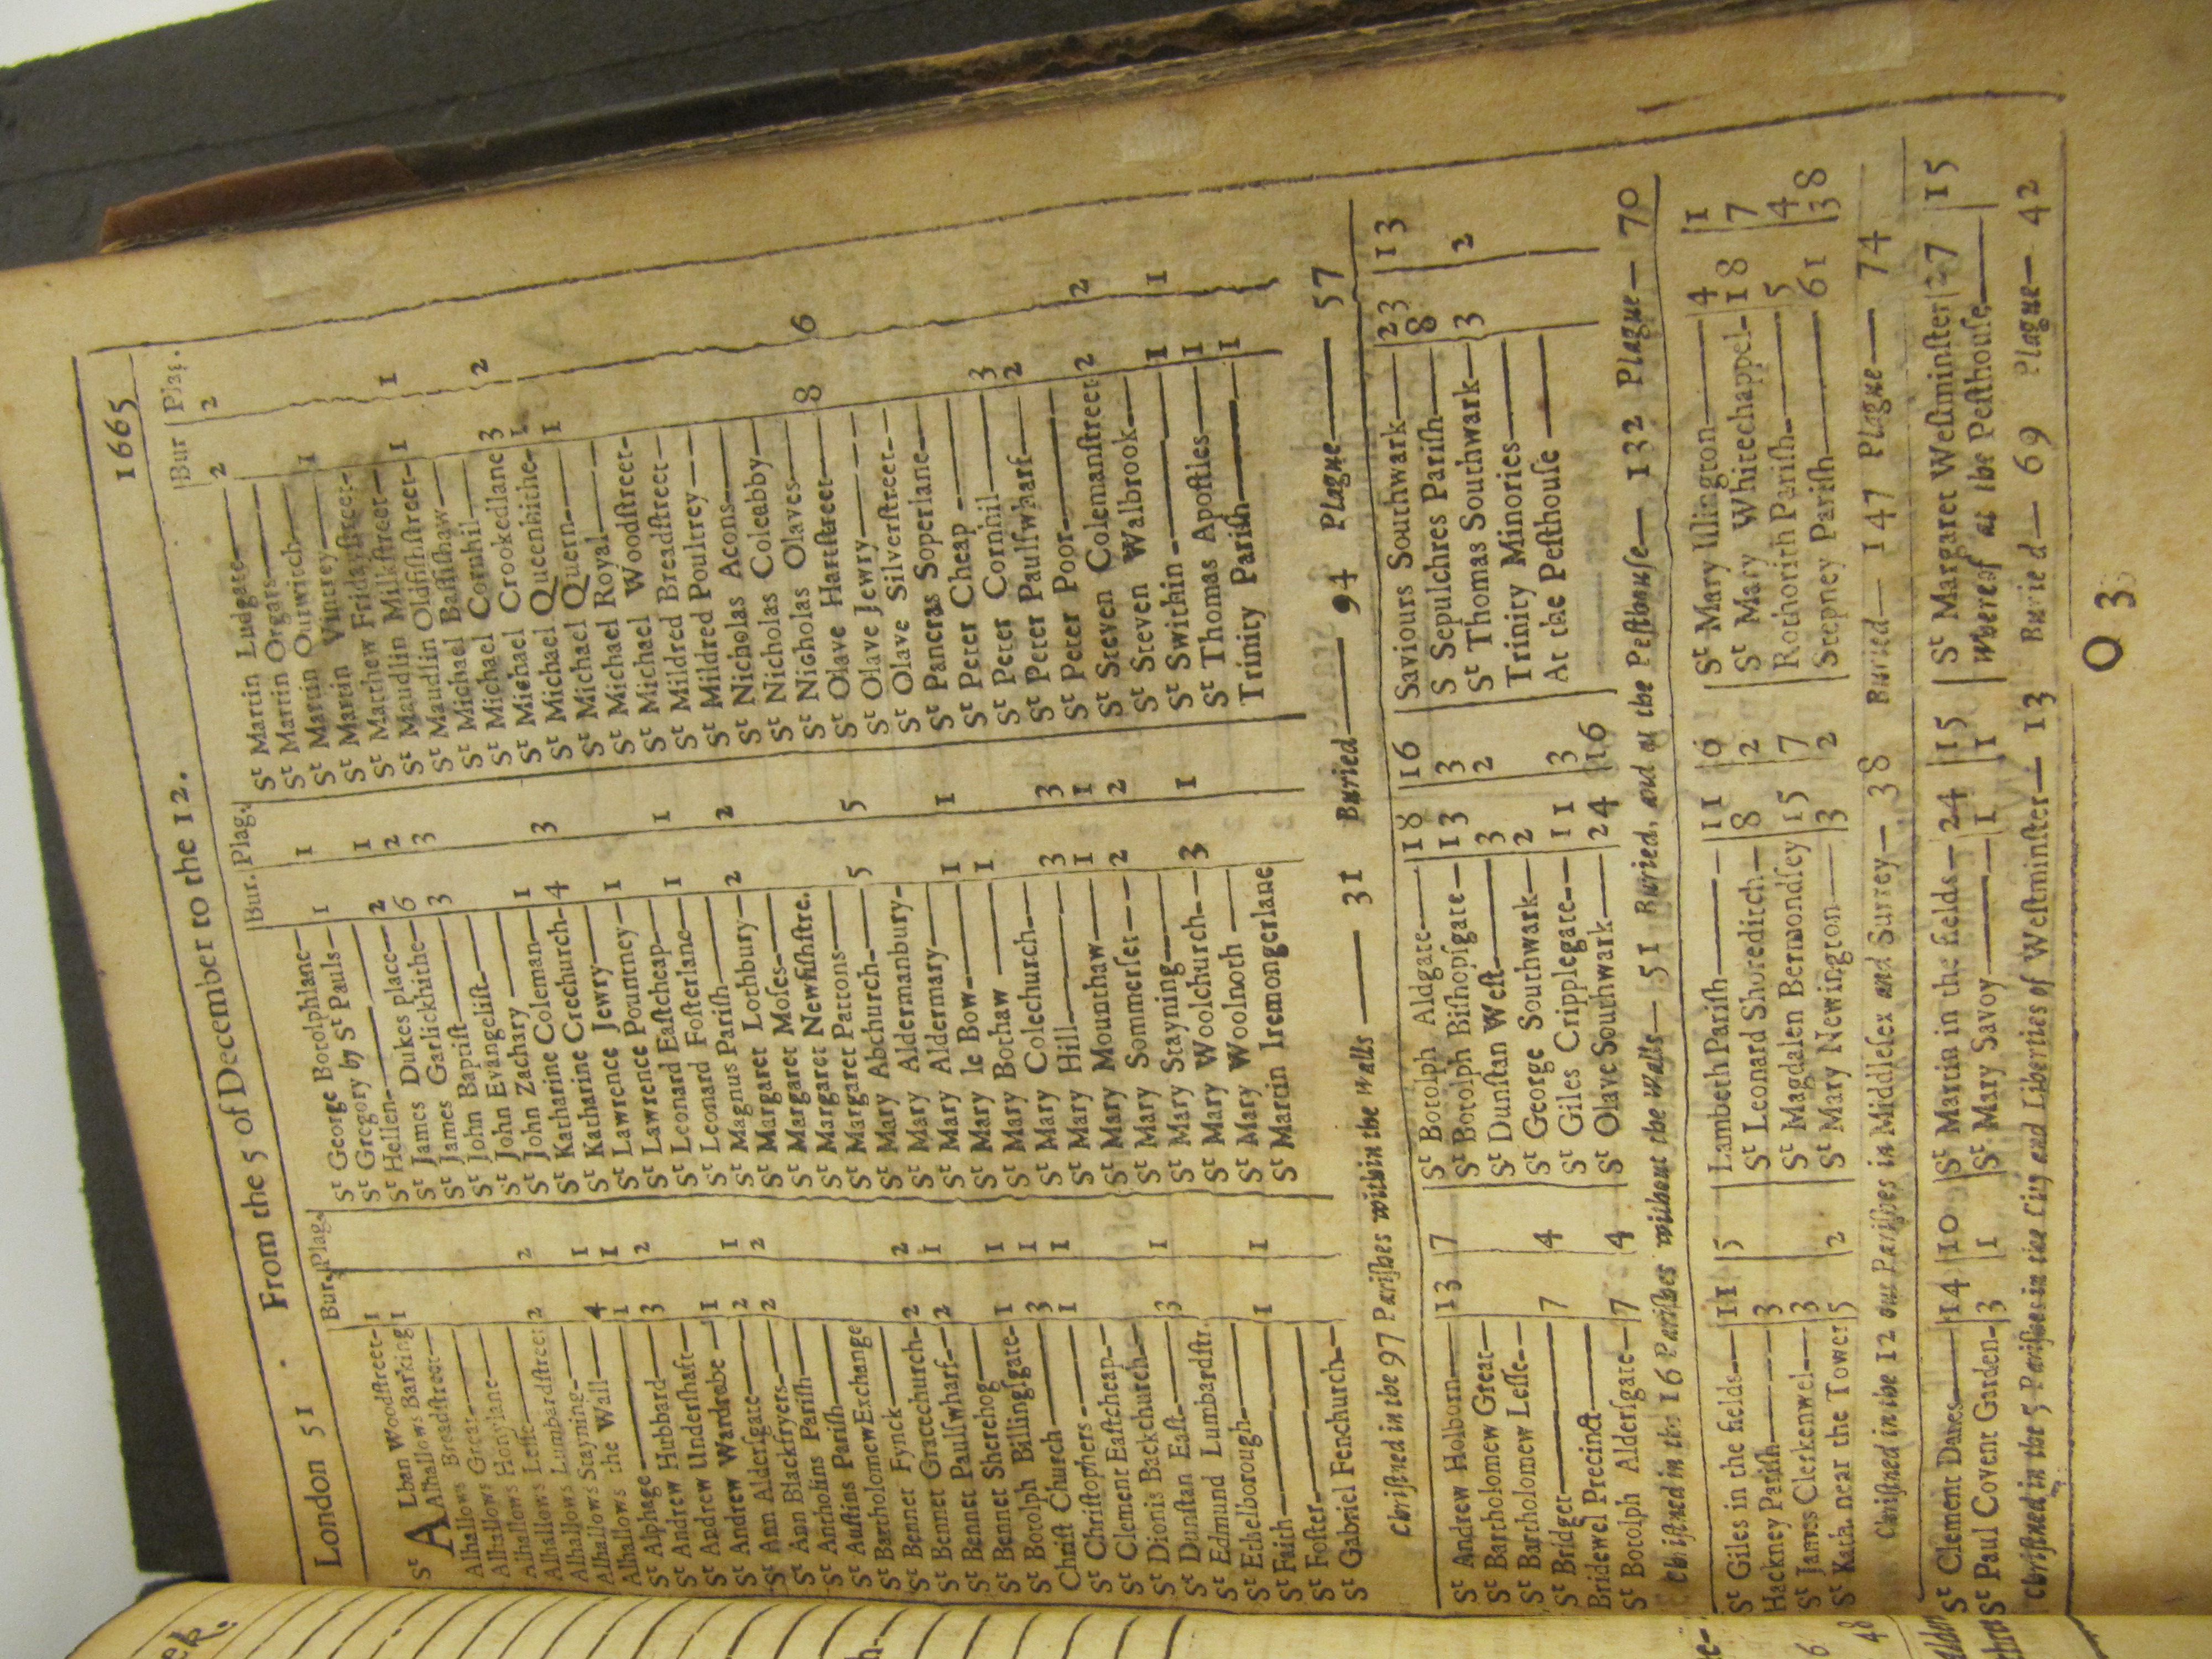 London 51 From the 5 of December to the 12. 1665
Bur. Plag.
St ALban Woodstreet 1
Alhallows Barking 1
Alhallows Breadstreet
Alhallows Great
Alhallows Honylane
Alhallows Lesse 2 2
Alhallows Lumbardstreet
Alhallows Stayning 4 1
Alhallows the Wall 1 1
St Alphage 3 2
St Andrew Hubbard
St Andrew Undershaft 1
St Andrew Wardrobe 2 1
St Ann Aldersgate 2 2
St Ann Blackfryers
St Antholins Parish
St Austins Parish
St Bartholomew Exchange
St Bennet Fynck 2 2
St Bennet Gracechurch 2 1
St Bennet Paulswharf
St Bennet Sherehog 1 1
St Botolph Billingsgate 3 1
Christ Church 1 1
St Christophers
St Clement Eastcheap
St Dionis Backchurch 3 1
St Dunstan East
St Edmund Lumbardstr.
St Ethelborough 1 1
St Faith
St Foster
St Gabriel Fenchurch
Bur. Plag.
St George Botolphlane
St Gregory by St Pauls 1 1
St Hellen
St James Dukes place 2 1
St James Garlickhithe 6 2
St John Baptist 3 3
St John Evangelist
St John Zachary
St Katharine Coleman 1
St Katharine Crechurch 4 3
St Lawrence Jewry
St Lawrence Pountney 1
St Leonard Eastcheap
St Leonard Fosterlane 1 1
St Magnus Parish
St Margaret Lothbury 2 2
St Margaret Moses
St Margaret Newfishstre.
St Margaret Pattons
St Mary Abchurch 5 5
St Mary Aldermanbury
St Mary Aldermary
St Mary le Bow 1 1
St Mary Bothaw 1
St Mary Colechurch
St Mary Hill 3 3
St Mary Mounthaw 1 1
St Mary Sommerset 2 2
St Mary Stayning
St Mary Woolchurch 3 1
St Mary Woolnoth
St Martin Iremongerlane
Bur Plag.
St Martin Ludgate 2 2
St Martin Orgars
St Martin Outwitch
St Martin Vintrey 1
St Matthew Fridaystreet
St Maudlin Milkstreet
St Maudlin Oldfishstreet 1 1
St Michael Bassishaw
St Michael Cornhil
St Michael Crookedlane 3 2
St Michael Queenhithe 1
St Michael Quern 1
St Michael Royal
St Michael Woodstreet
St Mildred Breadstreet
St Mildred Poultrey
St Nicholas Acons
St Nicholas Coleabby
St Nicholas Olaves
St Olave Hartstreet 8 6
St Olave Jewry
St Olave Silverstreet
St Pancras Soperlane
St Peter Cheap
St Peter Cornhil 3
St Peter Paulswharf 2
St Peter Poor
St Steven Colemanstreet 2 2
St Steven Walbrook
St Swithin 1 1
St Thomas Apostles 1
Trinity Parish 1
Christned in the 97 Parishes within the Walls 31 Buried 94 Plague 57
St Andrew Holborn 13 7
St Bartholomew Great
St Bartholomew Lesse
St Bridget 7 4
Bridewel Precinct
St Botolph Aldersgate 7 4
St Botolph Aldgate 18 16
St Botolph Bishopsgate 13 3
St Dunstan West 3 2
St George Southwark 2
St Giles Cripplegate 11 3
St Olave Southwark 24 16
Saviours Southwark 23 13
S Sepulchres Parish 8
St Thomas Southwark 3 2
Trinity Minories
At the Pesthouse
Christned in the 16 Parishes without the Walls 51 Buried, and at the Pesthouse 132 Plague 70
St Giles in the fields 11 5
Hackney Parish 3
St James Clerkenwel 3
St Kath. near the Tower 5 2
Lambeth Parish 11 6
St Leonard Shoreditch 8 2
St Magdalen Bermondsey 15 7
St Mary Newington 3 2
St Mary Islington 4 1
St Mary Whitechappel 18 7
Rothorith Parish 5 4
Stepney Parish 61 38
Christned in the 12 out Parishes in Middlesex and Surrey 38 Buried 147 Plague 74
St Clement Danes 14 10
St Paul Covent Garden 3 1
St Martin in the fields 24 15
St Mary Savoy 1 1
St Margaret Westminster 27 15
Whereof at the Pesthouse
Christned in the 5 Parishes in the City and Liberties of Westminster 13 Buried 69 Plague 42
O 3